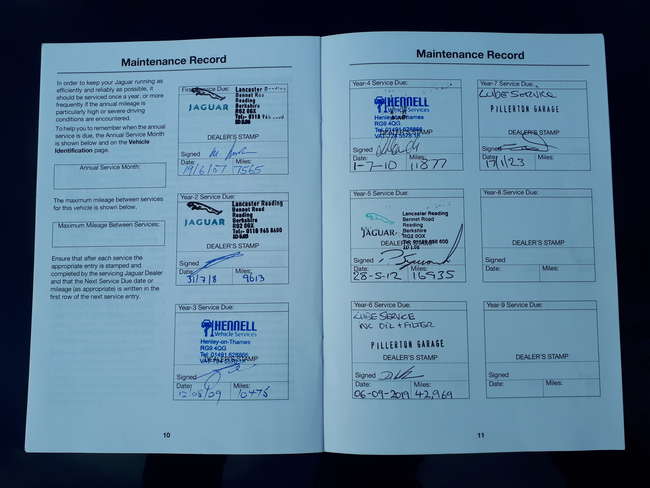 Maintenance Record
In order to keep your Jaguar running as
efficiently and reliably as possible, it
should be serviced once a year, or more
frequently if the annual mileage is
particularly high or severe driving
conditions are encountered.
To help you to remember when the annual
service is due, the Annual Service Month
is shown below and on the Vehicle
Identification page.
Annual Service Month:
The maximum mileage between services
for this vehicle is shown below.
Maximum Mileage Between Services:
Ensure that after each service the
appropriate entry is stamped and
completed by the servicing Jaguar Dealer
and that the Next Service Due date or
mileage (as appropriate) is written in the
first row of the next service entry.
First Service Due:
JAGUAR
Lancaster
Bennet
Reading
Berkshire
RG2 0QX
DEALER'S STAMP
Signed
Date: Miles:
19/6/07 7565
Year-2 Service Due:
JAGUAR
Lancaster Reading
Bennet Road
Reading
Berkshire
RG2 0QX
Tel:- 0118 965 8600
DEALER'S STAMP
Signed
Date: Miles:
31/7/8 9613
Year-3 Service Due:
HENNELL
Vehicle Services
Henley-on-Thames
RG9 4QG
DEALER'S STAMP
Signed
Date: Miles:
12/08/09 10475
10
Maintenance Record
Year-4 Service Due:
HENNELL
Henley-on-Thames
RG9 4QG
DEALER'S STAMP
Signed
Date: Miles:
1-7-10 11877
Year-5 Service Due:
JAGUAR
Lancaster Reading
Bennet Road
Reading
Berkshire
RG2 0QX
DEALER'S STAMP
Signed
Date: Miles:
28-5-12 16935
Year-6 Service Due:
LUBE SERVICE
INC OIL + FILTER
PILLERTON GARAGE
DEALER'S STAMP
Signed
Date: Miles:
06-09-2019 42,969
Year-7 Service Due:
LUBE SERVICE
PILLERTON GARAGE
DEALER'S STAMP
Signed
Date: Miles:
17/1/23
Year-8 Service Due:
DEALER'S STAMP
Signed
Date: Miles:
Year-9 Service Due:
DEALER'S STAMP
Signed
Date: Miles:
11